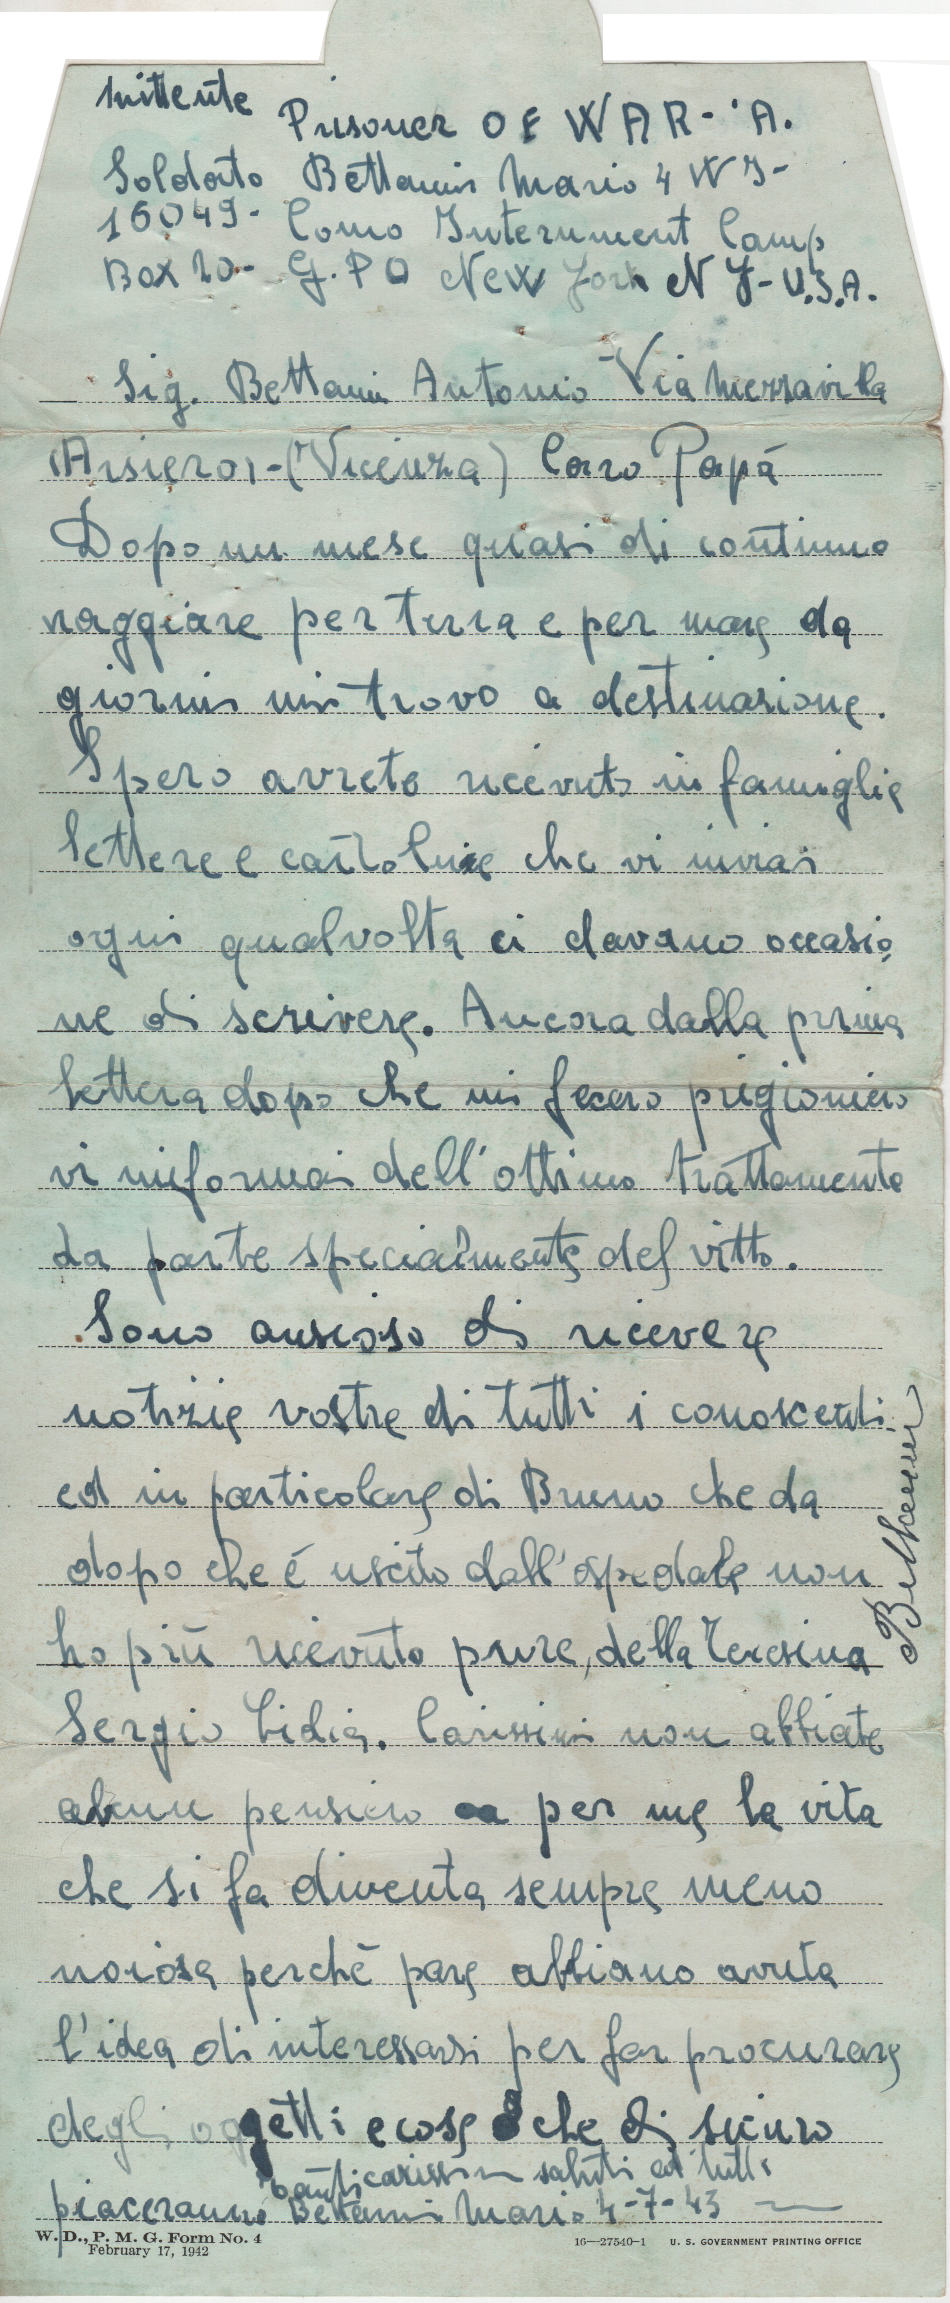 Mittente Prisoner OF WAR- 'A.
Soldato Bettanin Mario 4 W I-
16049- Como Internment Camp
Box 20- G. P O New York N Y- U.S.A.
Sig. Bettanin Antonio Via Mezzavilla
(Arsiero)-(Vicenza) Caro Papá
Dopo un mese quasi di continuo
viaggiare per terra e per mare da
giorni mi trovo a destinazione.
Spero avrete ricevuto in famiglia
lettere e cartoline che vi inviai
ogni qualvolta ci davano occasio
ne di scrivere. Ancora dalla prima
lettera dopo che mi fecero prigioniero
vi informai dell'ottimo trattamento
da parte specialmente del vitto.
Sono ansioso di ricevere
notizie vostre di tutti i conoscenti
ed in particolare di Bruno che da
dopo che é uscito dall'ospedale non
ho più ricevuto pure, della Teresina
Sergio Lidia. Carissimi non abbiate
alcun pensiero per me la vita
che si fa diventa sempre meno
noiosa perchè pare abbiano avuta
l'idea di interessarsi per far procurare
degli oggetti e cose che di sicuro
piaceranno tanti carissimi saluti ed tutti
Bettanin Mario 4-7-43
Bettanin
W. D., P. M. G. Form No. 4
February 17, 1942
16—27540-1 U. S. GOVERNMENT PRINTING OFFICE